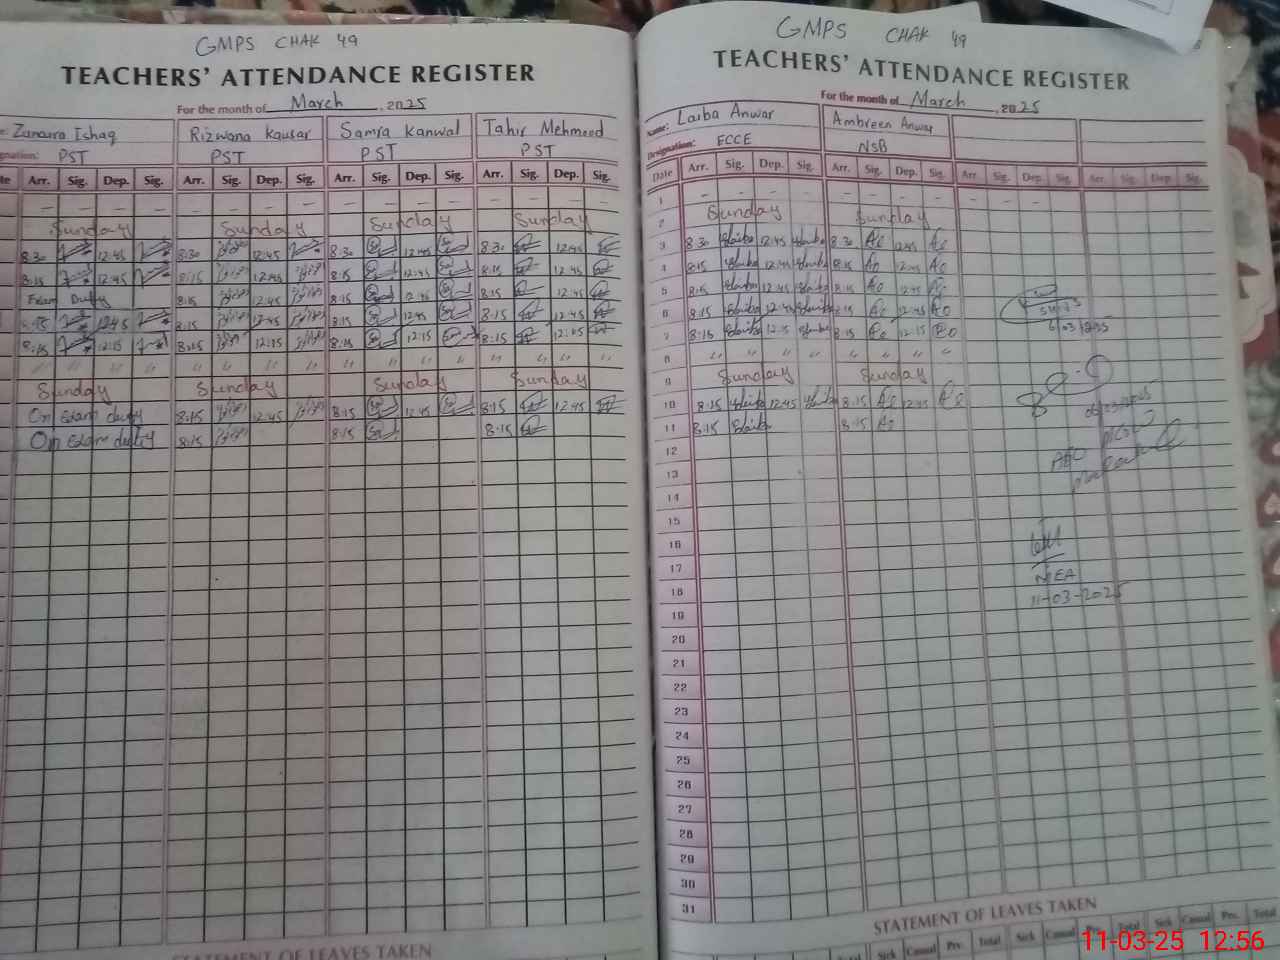 GMPS CHAK 49
TEACHERS' ATTENDANCE REGISTER
For the month of March, 2025
Zanaira Ishaq Rizwana Kausar Samra Kanwal Tahir Mehmood
gnation: PST PST PST PST
te Arr. Sig. Dep. Sig. Arr. Sig. Dep. Sig. Arr. Sig. Dep. Sig. Arr. Sig. Dep. Sig.
– – – – – – – – – – – – – – – –
Sunday Sunday Sunday Sunday
8.30 12:45 8:30 12:45 8:30 12:45 8.30 12:45
8:15 12:45 8:15 12:45 8:15 12:45 8:15 12:45
Exam Duty 8:15 12:45 8:15 12:45 8:15 12:45
8:15 12:45 8:15 12:45 8:15 12:45 8:15 12:45
8:15 12:15 8:15 12:15 8:15 12:15 8:15 12:15
" " " " " " " " " " " " " " " "
Sunday Sunday Sunday Sunday
On Exam duty 8:15 12:45 8:15 12:45 8:15 12:45
On Exam duty 8:15 8:15 8:15
STATEMENT OF LEAVES TAKEN
GMPS CHAK 49
TEACHERS' ATTENDANCE REGISTER
For the month of March, 2025
Name: Laiba Anwar Ambreen Anwar
Designation: ECCE NSB
Date Arr. Sig. Dep. Sig. Arr. Sig. Dep. Sig. Arr. Sig. Dep. Sig. Arr. Sig. Dep. Sig.
1 – – – – – – – –
2 Sunday Sunday
3 8:30 Laiba 12:45 Laiba 8.30 12:45
4 8:15 Laiba 12:45 Laiba 8:15 12:45
5 8:15 Laiba 12:45 Laiba 8:15 12:45
6 8:15 Laiba 12:45 Laiba 8:15 12:45
7 8:15 Laiba 12:15 Laiba 8:15 12:15
8 " " " " " " " "
9 Sunday Sunday
10 8:15 Laiba 12:45 Laiba 8:15 12:45
11 8:15 Laiba 8:15
12
13
14
15
16
17
18
19
20
21
22
23
24
25
26
27
28
29
30
31
AEO
MEA
11-03-2025
STATEMENT OF LEAVES TAKEN
Total Sick Casual Prv. Total Sick Casual Prv. Total Sick Casual Prv. Total
11-03-25 12:56